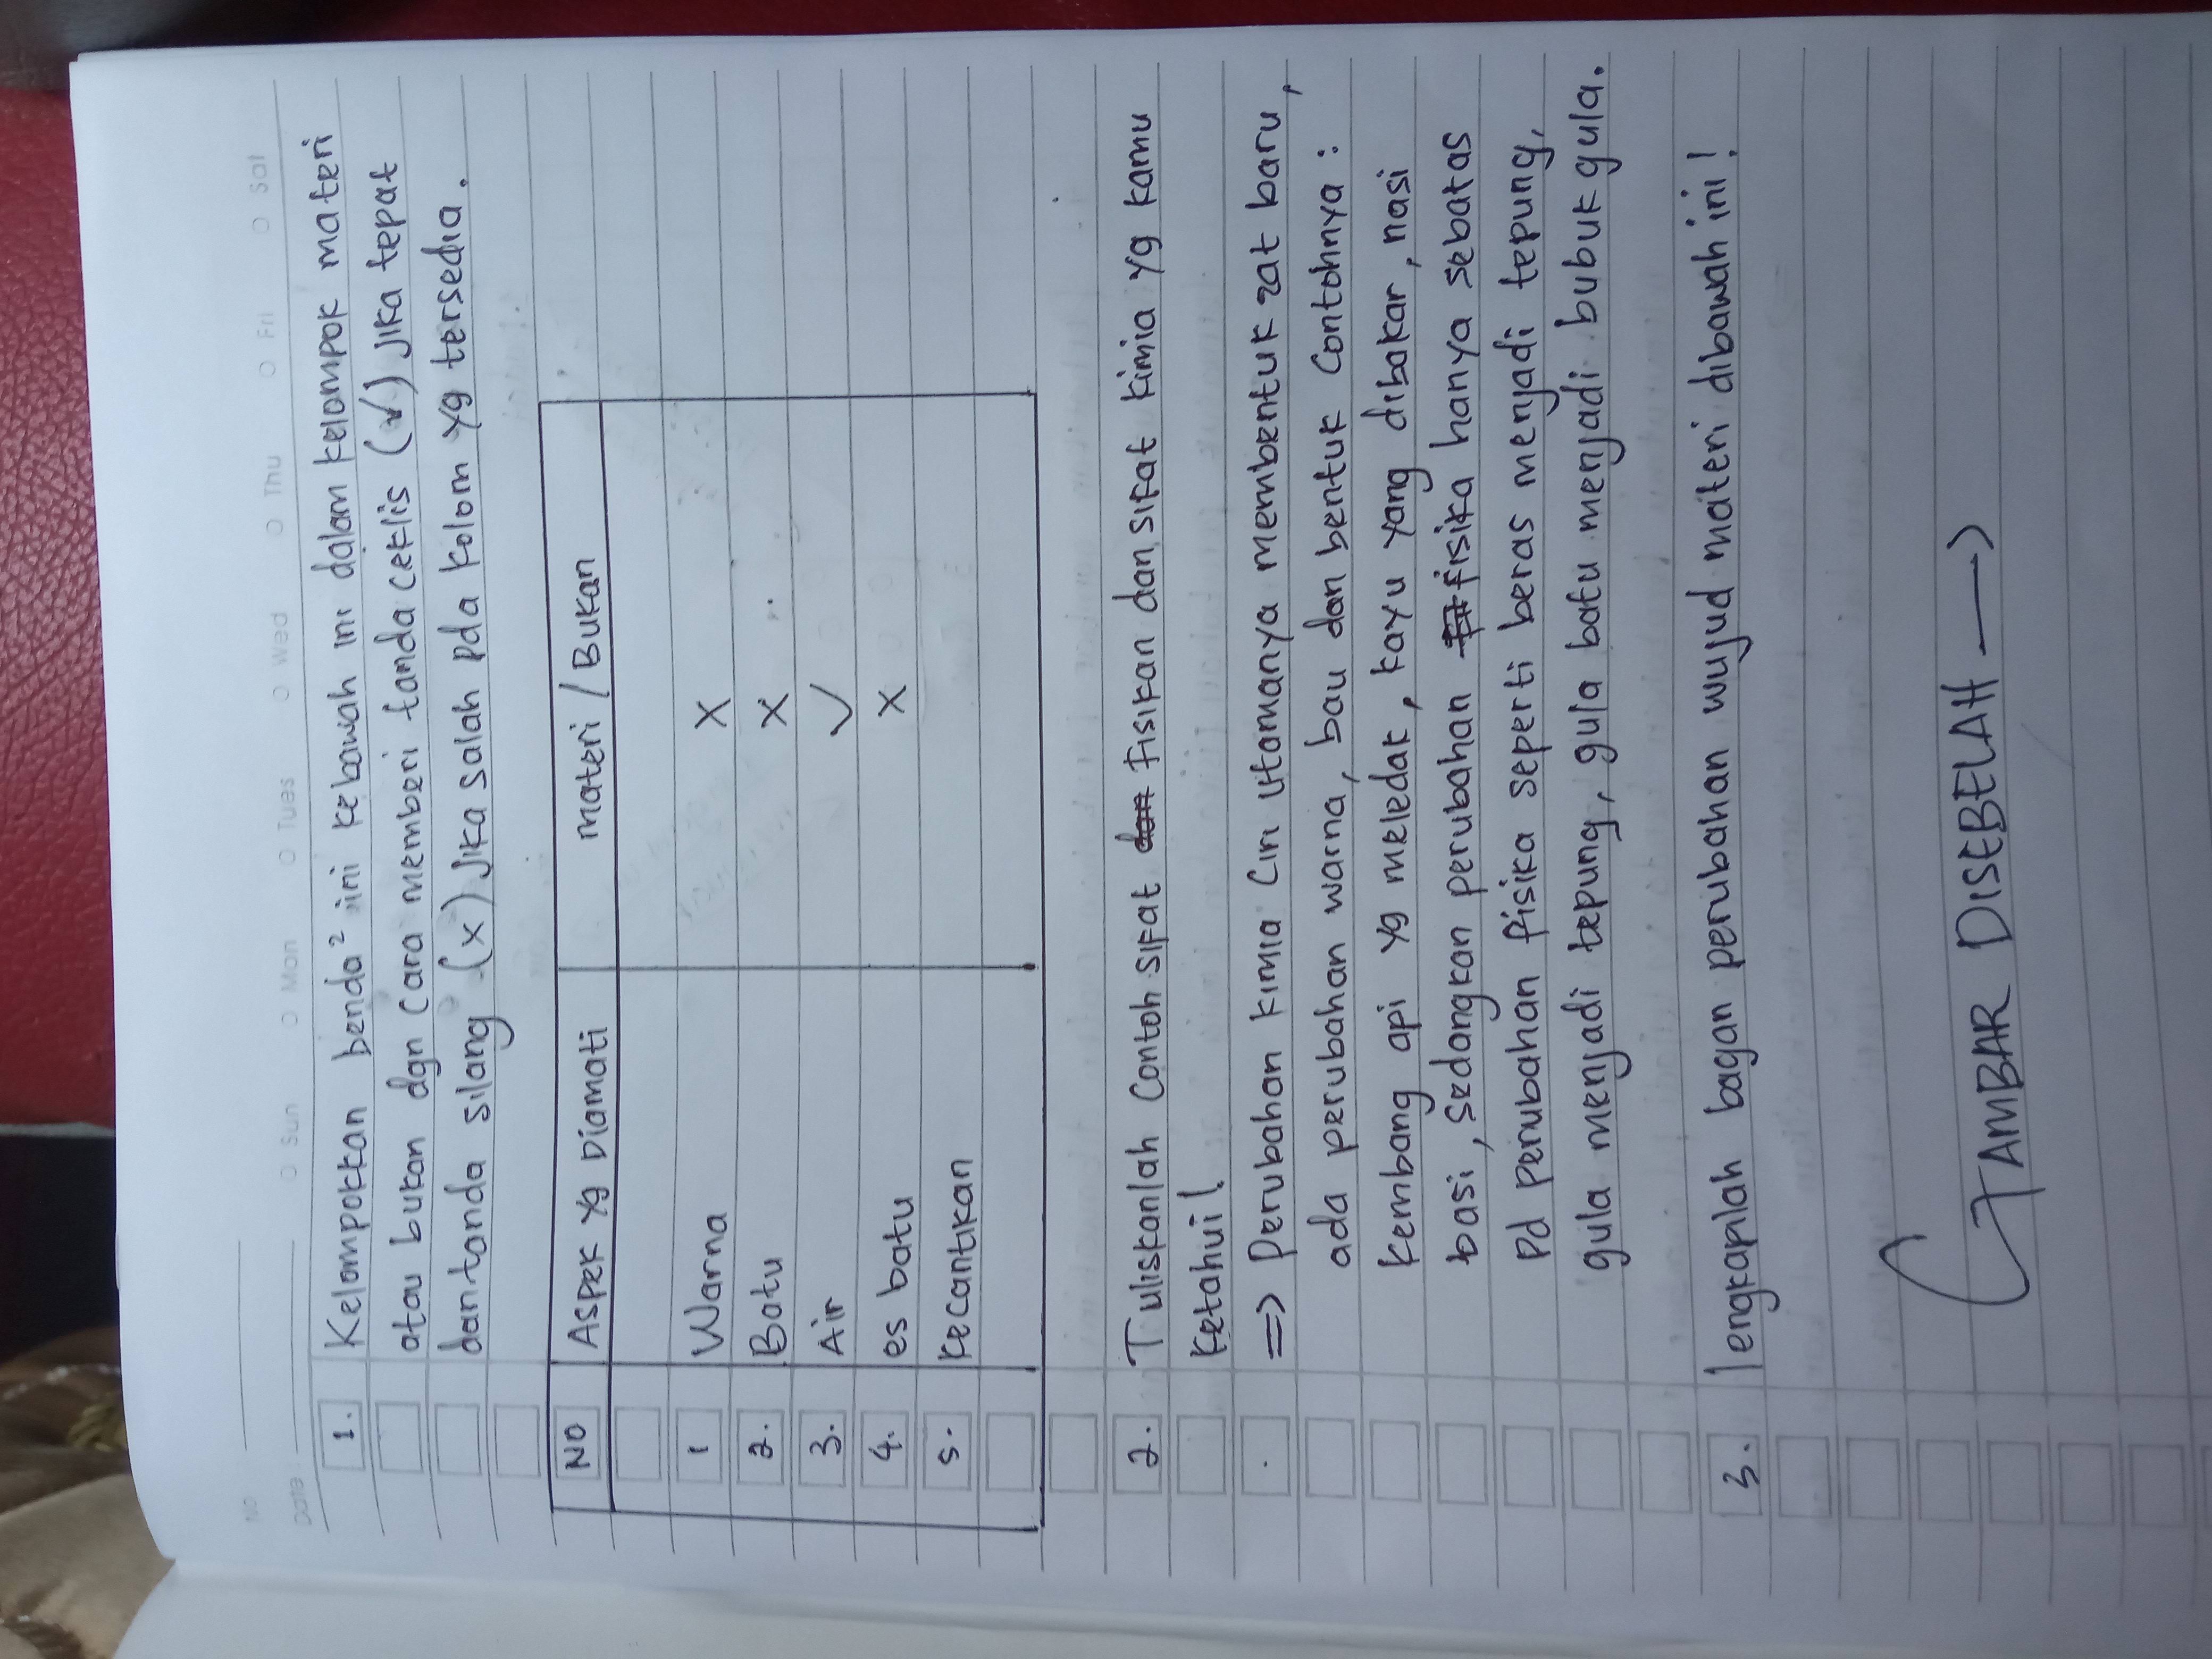 No
Date :
Sun Mon Tues Wed Thu Fri Sat
1. Kelompokkan benda² ini kebawah ini dalam kelompok materi
atau bukan dgn cara memberi tanda ceklis (√) jika tepat
dan tanda silang (x) jika salah pda kolom yg tersedia.
NO Aspek yg Diamati materi / Bukan
1 Warna X
2. Batu X
3. Air √
4. es batu X
5. kecantikan
2. Tuliskanlah contoh sifat dan fisikan dan sifat kimia yg kamu
ketahui!
=> Perubahan kimia ciri utamanya membentuk zat baru,
ada perubahan warna, bau dan bentuk contohnya :
kembang api yg meledak, kayu yang dibakar, nasi
basi, sedangkan perubahan fisika hanya sebatas
pd perubahan fisika seperti beras menjadi tepung,
gula menjadi tepung, gula batu menjadi bubuk gula.
3. lengkapilah bagan perubahan wujud materi dibawah ini!
GAMBAR DISEBELAH →